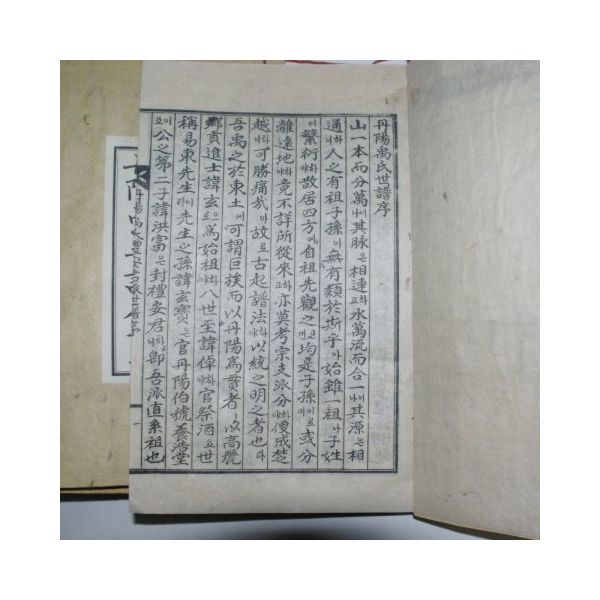 丹陽禹氏世譜序
山一本而分萬이나其脉은相連하고水萬流而合一이나其源은相
通하니人之有祖子孫이無有類於斯乎아始雖一祖나子姓
이繁衍하야故居四方에自祖先觀之면均是子孫이로되或分
離遠地하야竟不詳所從來하고亦莫考宗支派分하야便成楚
越하니可勝痛哉아故로古起譜法하야以統之明之者也라
吾禹之於東土에可謂巨族而以丹陽爲貫者는以高麗
鄕貢進士諱玄으로爲始祖하야八世至諱倬하야官祭酒요世
稱易東先生이라先生之孫諱玄寶은官丹陽伯號養浩堂
이요公之第二子諱洪富은封禮安君하니卽吾派直系祖也